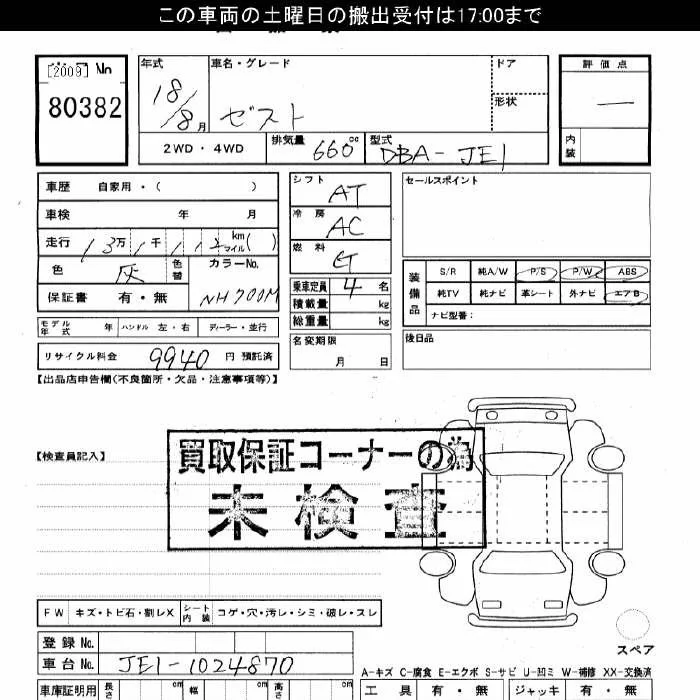 この車両の土曜日の搬出受付は17:00まで
[2009] No
80382
年式 車名・グレード ドア 評価点
18/8月 ゼスト 形状 —
2WD・4WD 排気量 660 cc 型式 DBA-JE1 内装
車歴 自家用・( )
車検 年 月
走行 13万1千112 km マイル( )
色 灰 色替 カラーNo. NH700M
保証書 有・無
モデル年式 年 ハンドル 左・右 ディーラー・並行
リサイクル料金 9940 円 預託済
シフト AT
冷房 AC
燃料
乗車定員 4 名
積載量 kg
総重量 kg
名変期限 月 日
セールスポイント
装備品 S/R 純A/W P/S P/W ABS
純TV 純ナビ 革シート 外ナビ エアB
ナビ型番:
後日品
【出品店申告欄(不良箇所・欠品・注意事項等)】
【検査員記入】
買取保証コーナーの為
未検査
FW キズ・トビ石・割レX シート内装 コゲ・穴・汚レ・シミ・破レ・スレ
登録No.
車台No. JE1-1024870
車庫証明用 長さ cm 幅 cm 高さ cm
スペア
A-キズ C-腐食 E-エクボ S-サビ U-凹ミ W-補修 XX-交換済
工具 有・無 ジャッキ 有・無